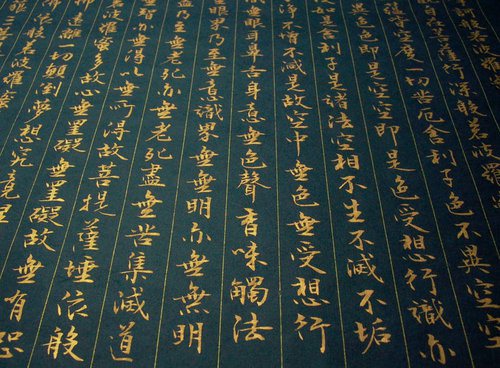 行深般若波羅蜜
度一切苦厄舍利子色不異空空
異色色即是空空即是色受想行識亦
如是舍利子是諸法空相不生不滅不垢
淨不增不減是故空中無色無受想行
眼耳鼻舌身意無色聲香味觸法
眼界乃至無意識界無無明亦無無明
乃至無老死亦無老死盡無苦集滅道
智亦無得以無所得故菩提薩埵依般
波羅蜜多故心無罣礙無罣礙故無有恐
遠離一切顛倒夢想究竟涅
依般若波羅蜜